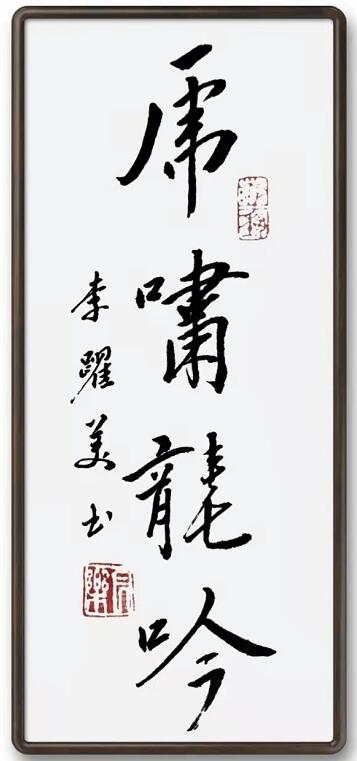 虎嘯龍吟
李躍美书